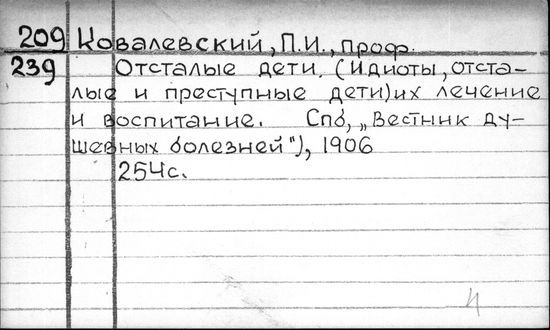 209 Ковалевский, П.И., проф.
239 Отсталые дети. (Идиоты, отста-
лые и преступные дети) их лечение
и воспитание. Спб, „Вестник ду-
шевных болезней"), 1906
254с.